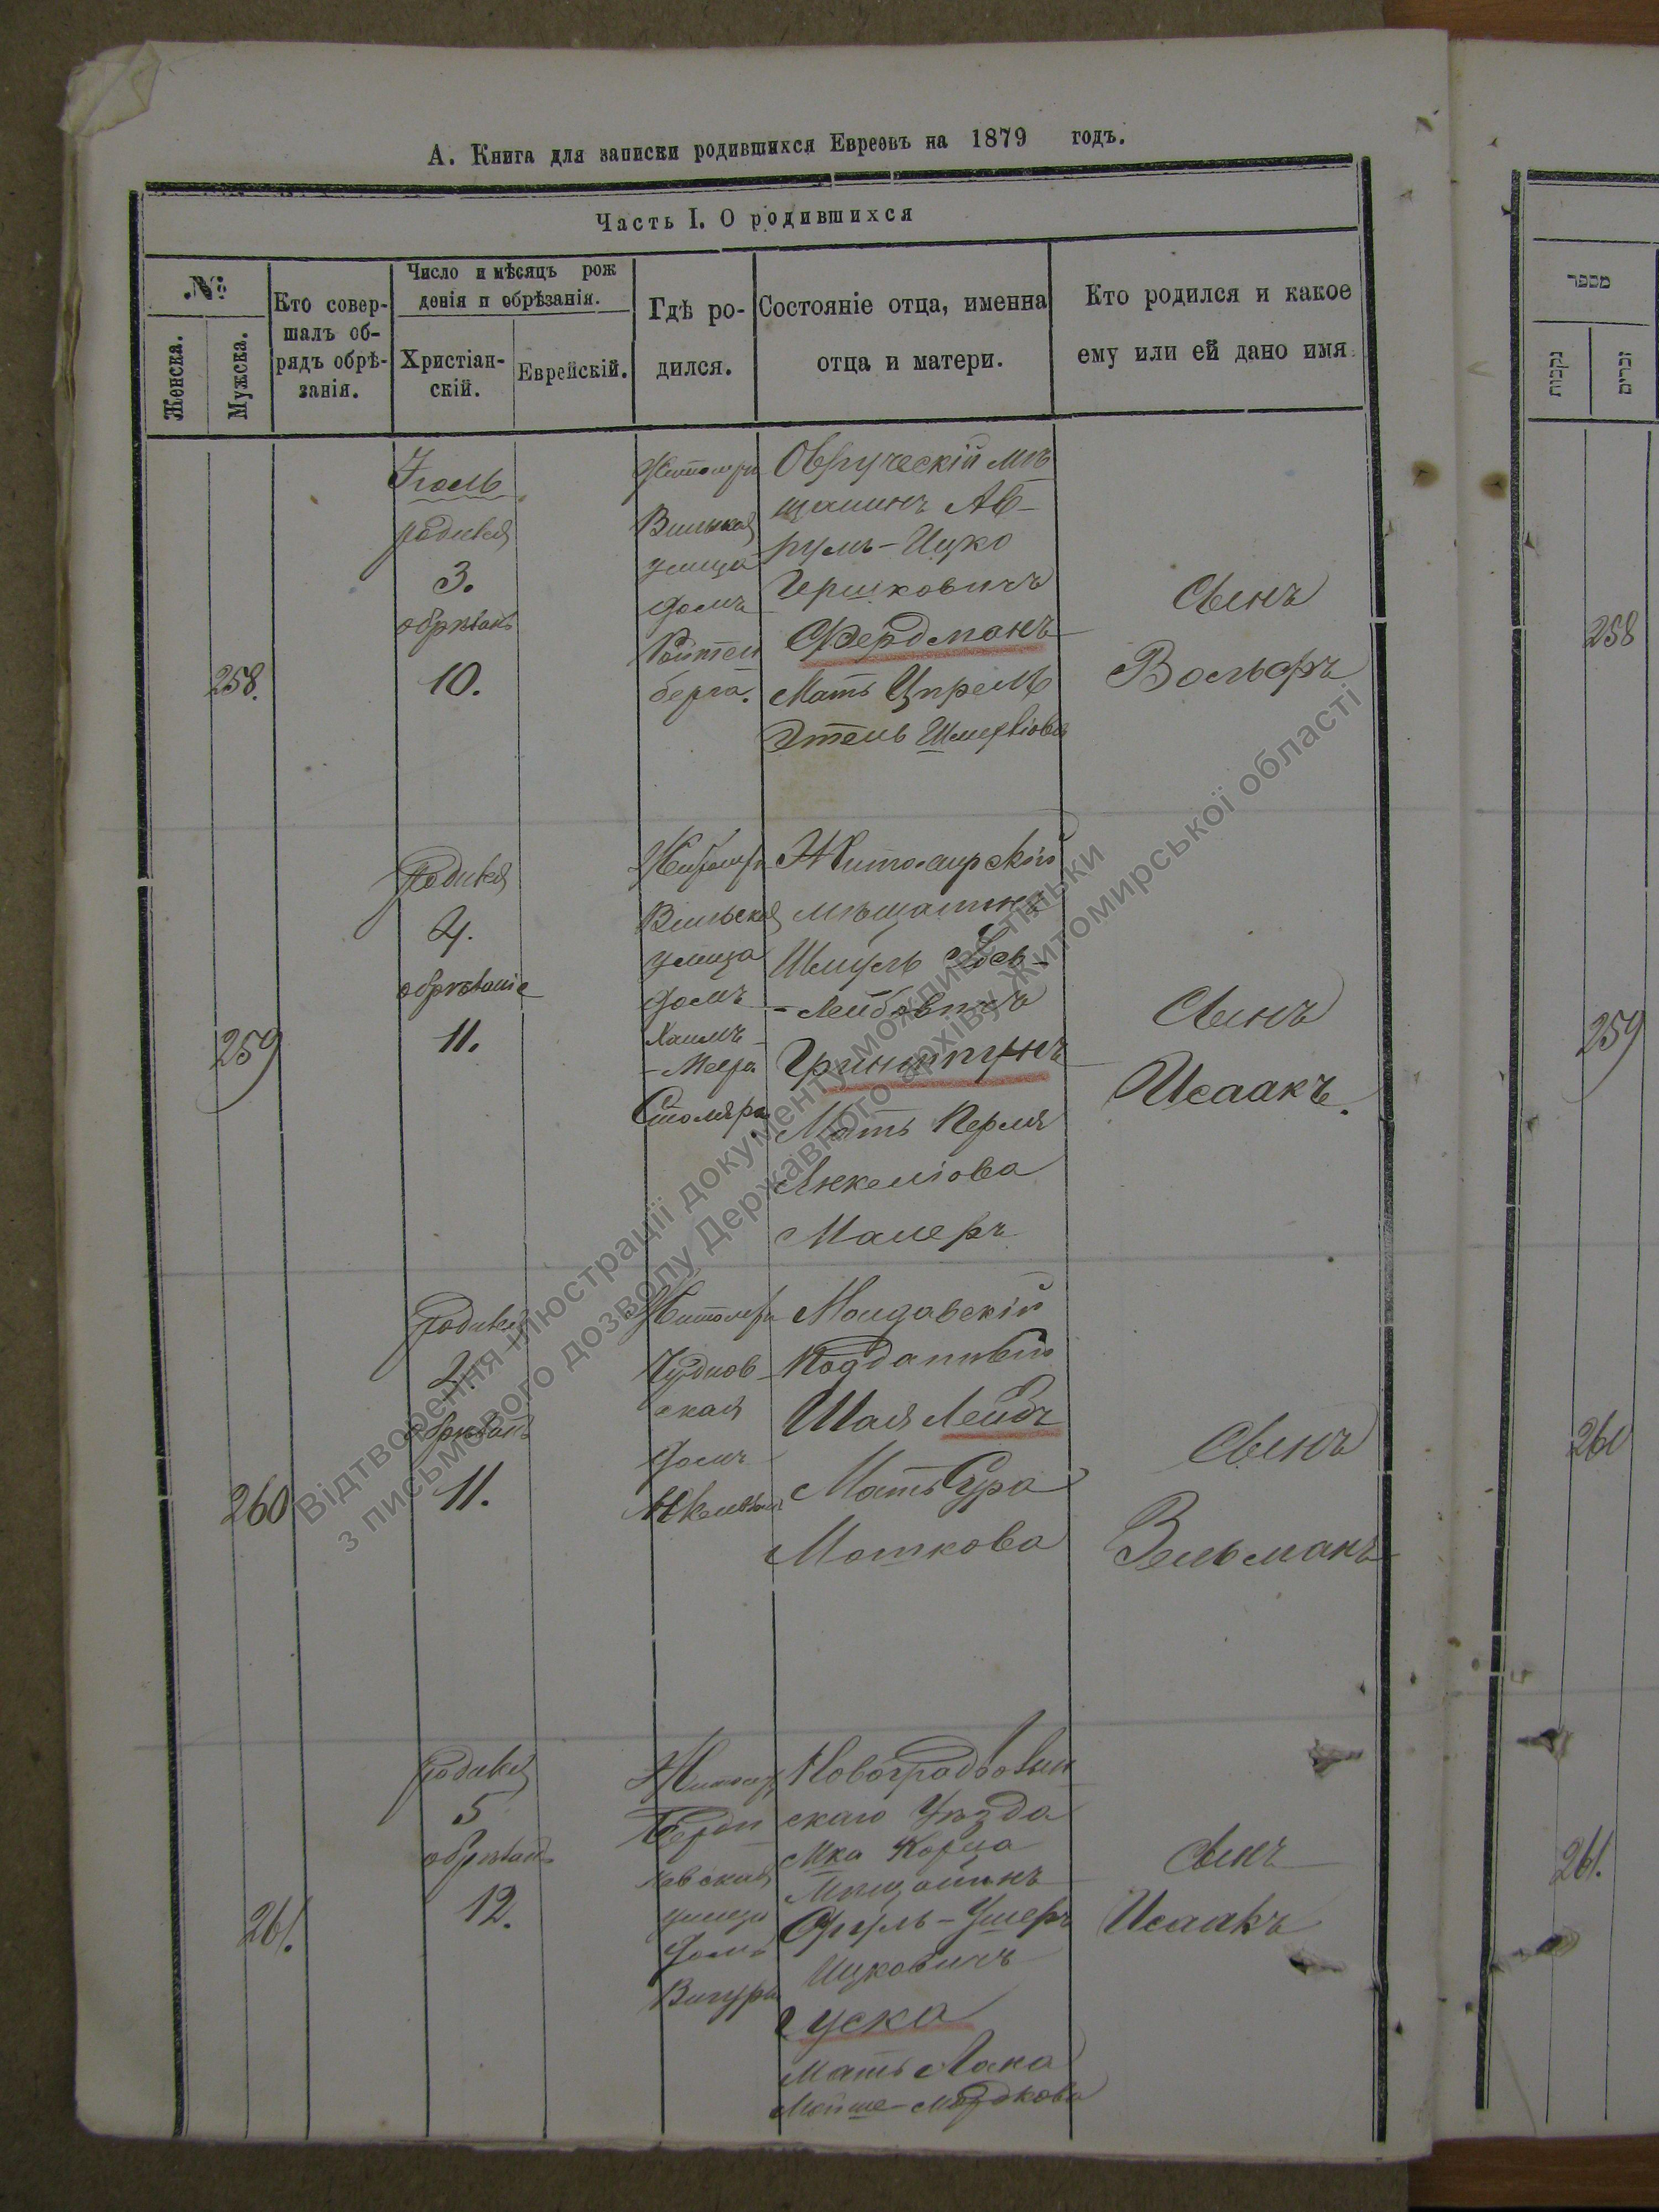 А. Книга для записки родившихся Евреевъ на 1879 годъ.
Часть I. О родившихся
№
Женска.
Мужска.
Кто совер-
шалъ об-
рядъ обрѣ-
занія.
Число и мѣсяцъ рож
денія и обрѣзанія.
Христіан-
скій.
Еврейскій.
Гдѣ ро-
дился.
Состояніе отца, именна
отца и матери.
Кто родился и какое
ему или ей дано имя.
מספר
נקבות
זכרים
258.
Іюль
родился
3.
обрѣзанъ
10.
Житомиръ
Вильская
улица
домъ
берга.
Овручскій мѣ
щанинъ Аб-
румъ-Ицко
Гершковичъ
Фердманъ
Мать Ципре
Этель
Сынъ
Вольфъ
258
259
родился
4.
обрѣзаніе
11.
Житомиръ
Вильская
улица
домъ
Хаимъ-
-Меера
Столяра
Житомирскій
мѣщанинъ
Шмуль
-Лейбовичъ
Гринштунъ
Мать Перля
Янкеліова
Малеръ
Сынъ
Исаакъ.
259
260
родился
4.
обрѣзанъ
11.
Житомиръ
Чуднов-
ская
домъ
Молдавскій
Подданный
Шая Лейбъ
Мать Сура
Моткова
Сынъ
Зельманъ
260
261.
родился
5
обрѣзанъ
12.
Житомиръ
Берди
чевская
улица
домъ
Вигуры
Новоградволын
скаго Уѣзда
Мка Корца
Мѣщанинъ
Сруль-Ушеръ
Ицковичъ
Гуска
Мать Хана
Мойше-Мордкова
Сынъ
Исаакъ
261.
Відтворення ілюстрації документу можливе тільки
з письмового дозволу Державного архіву Житомирської області